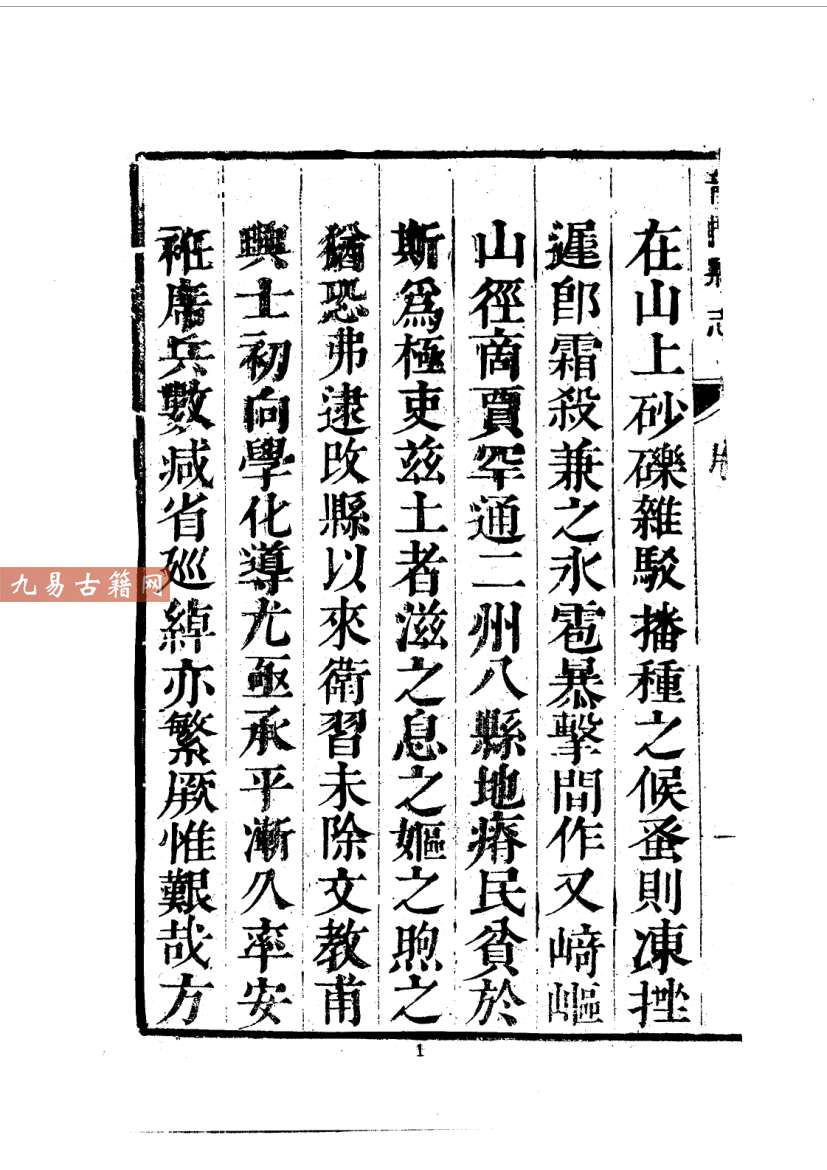 縣志
在山上砂礫雜駁播種之候蚤則凍挫
遲卽霜殺兼之氷雹暴擊間作又崎嶇
山徑商賈罕通二州八縣地瘠民貧於
斯爲極吏兹土者滋之息之嫗之煦之
猶恐弗逮改縣以來衛習未除文教甫
興士初向學化導尤亟承平漸久率安
袵席兵數减省廵綽亦繁厥惟艱哉方
1
九易古籍网